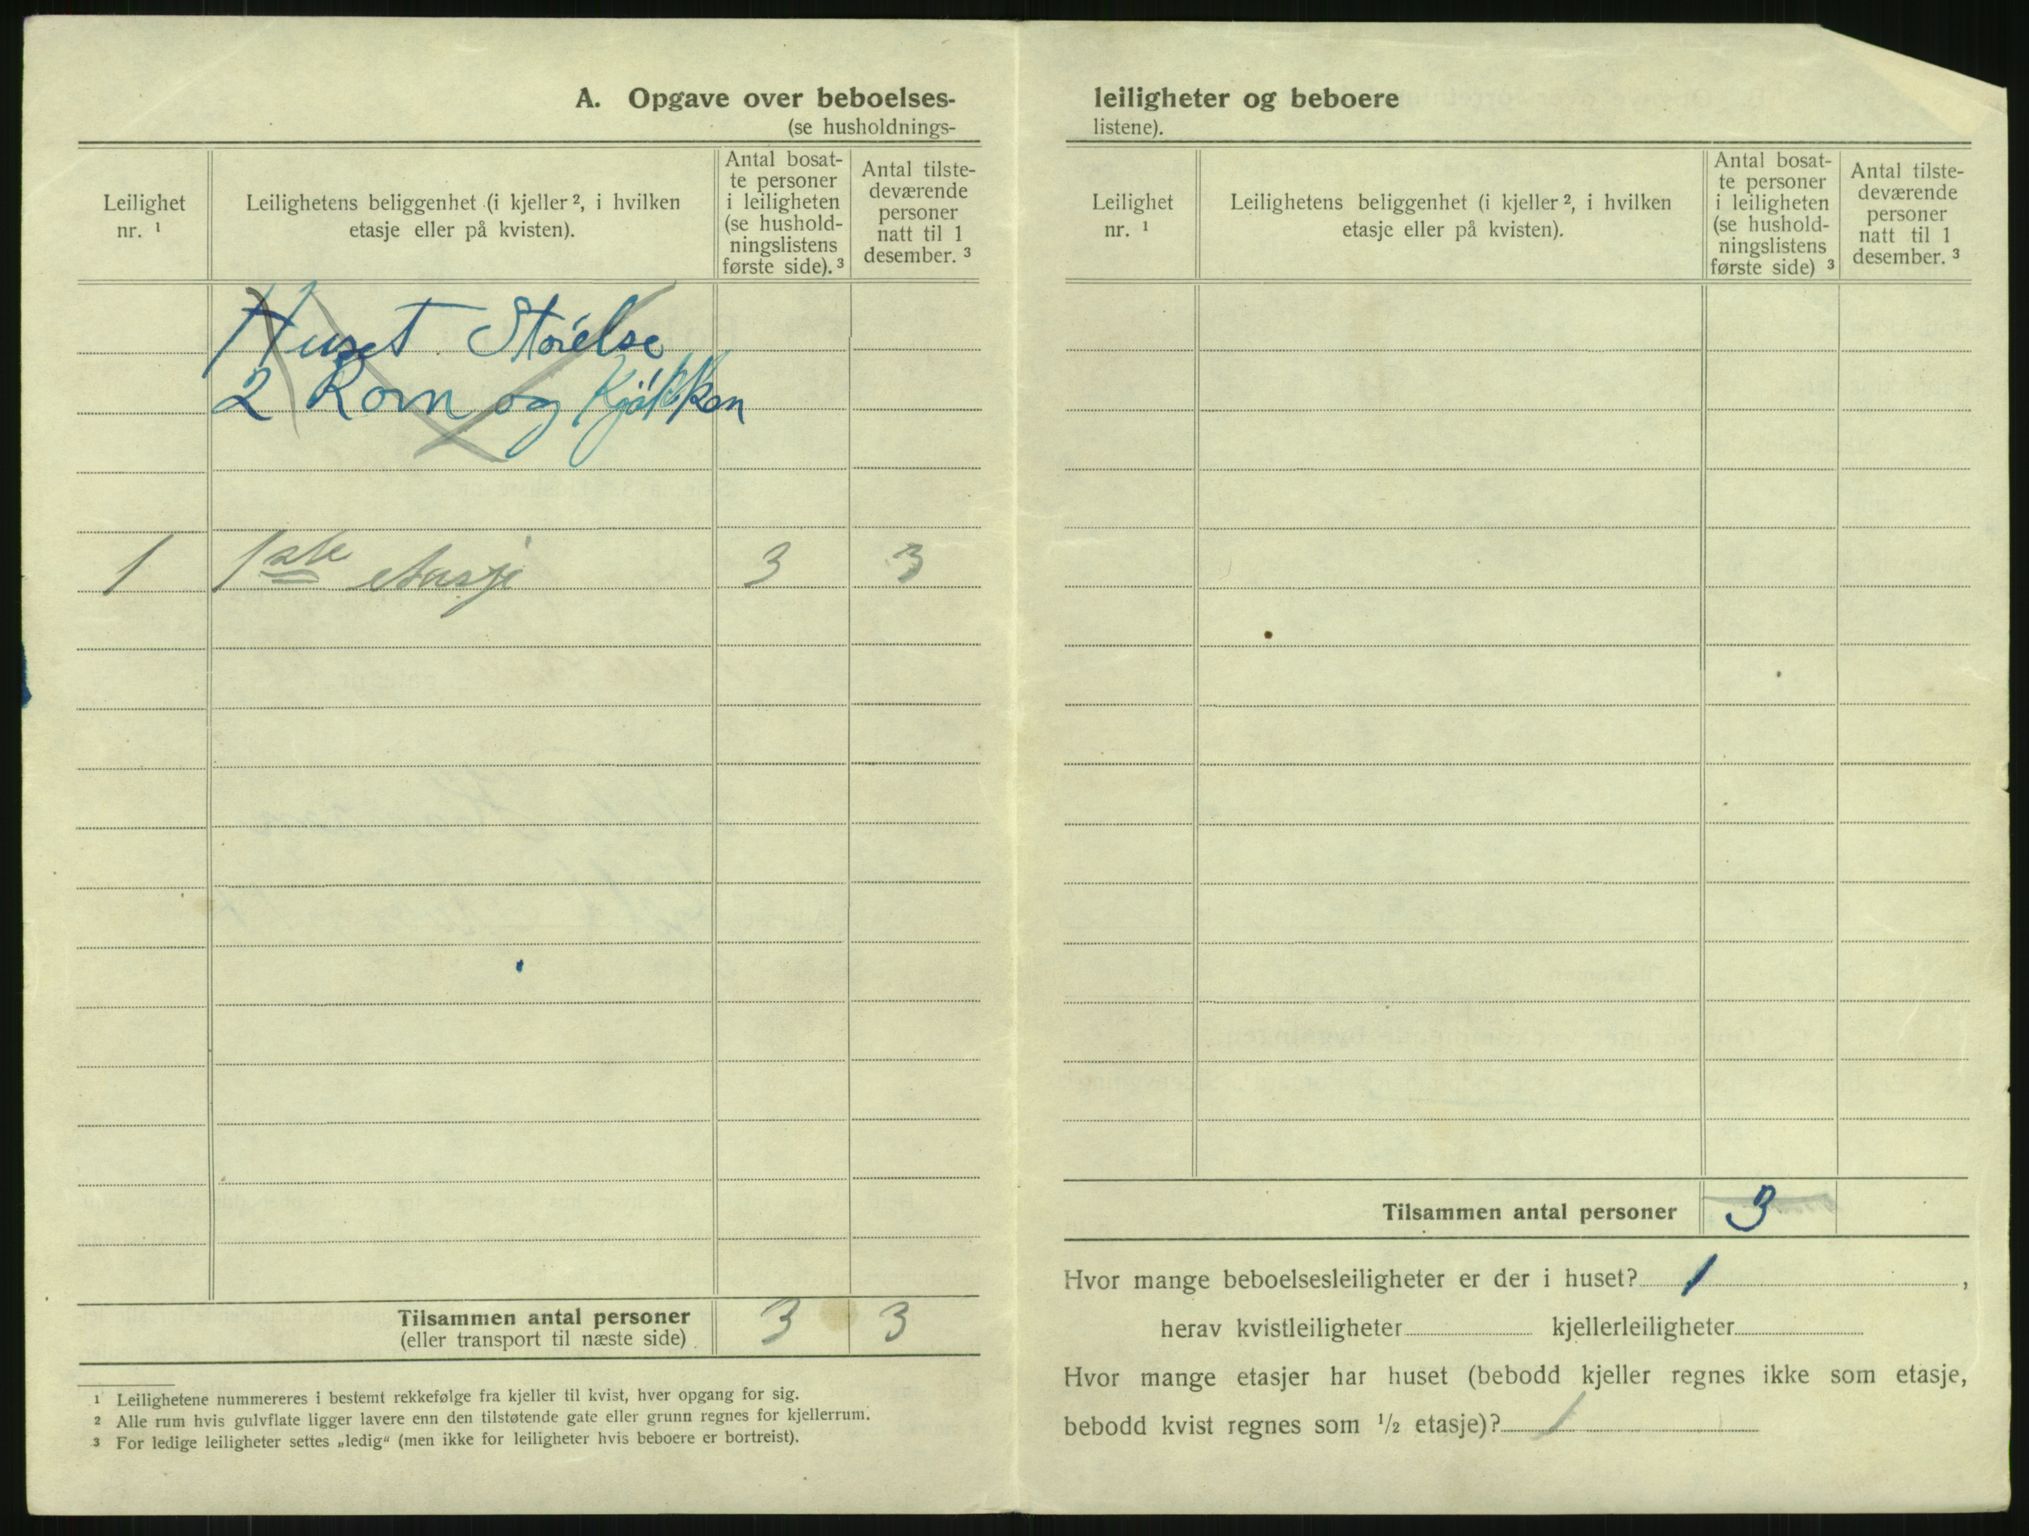 A. Opgave over beboelses-
(se husholdnings-
Leilighet nr. 1
Leilighetens beliggenhet (i kjeller 2, i hvilken
etasje eller på kvisten).
Antal bosat-
te personer
i leiligheten
(se hushold-
ningslistens
første side). 3
Antal tilste-
deværende
personer
natt til 1
desember. 3
Huset Störelse
2 Rom og Kjökken
1 1ste etasje 3 3
Tilsammen antal personer 3 3
(eller transport til næste side)
1 Leilighetene nummereres i bestemt rekkefølge fra kjeller til kvist, hver opgang for sig.
2 Alle rum hvis gulvflate ligger lavere enn den tilstøtende gate eller grunn regnes for kjellerrum.
3 For ledige leiligheter settes „ledig“ (men ikke for leiligheter hvis beboere er bortreist).
leiligheter og beboere
listene).
Leilighet nr. 1
Leilighetens beliggenhet (i kjeller 2, i hvilken
etasje eller på kvisten).
Antal bosat-
te personer
i leiligheten
(se hushold-
ningslistens
første side) 3
Antal tilste-
deværende
personer
natt til 1
desember. 3
Tilsammen antal personer 3
Hvor mange beboelsesleiligheter er der i huset? 1 ,
herav kvistleiligheter kjellerleiligheter
Hvor mange etasjer har huset (bebodd kjeller regnes ikke som etasje,
bebodd kvist regnes som 1/2 etasje)? 1